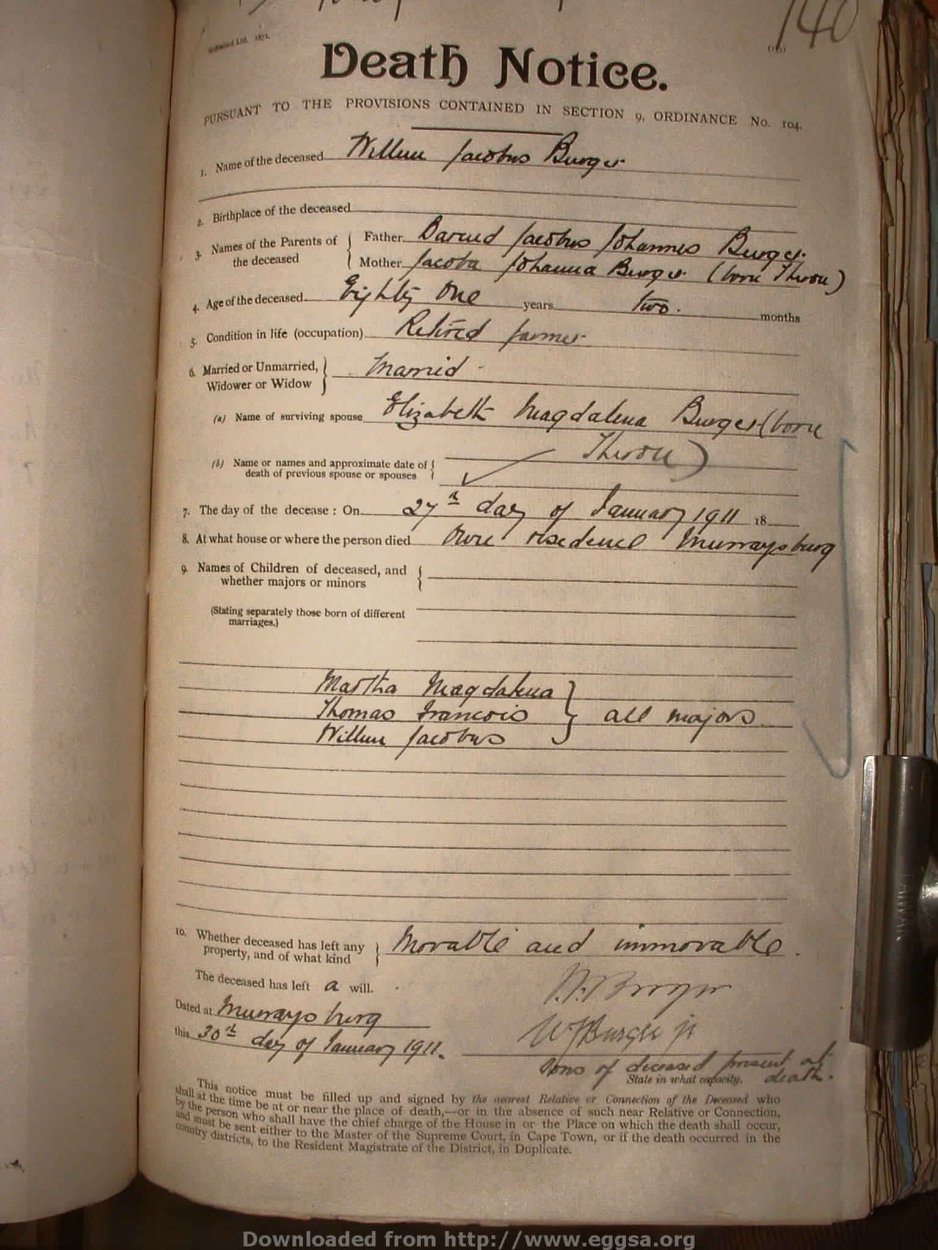 140
Death Notice.
PURSUANT TO THE PROVISIONS CONTAINED IN SECTION 9, ORDINANCE No. 104.
1. Name of the deceased Willem Jacobus Burger
2. Birthplace of the deceased
3. Names of the Parents of the deceased { Father Barend Jacobus Johannes Burger.
Mother Jacoba Johanna Burger (born Theron)
4. Age of the deceased Eighty One years two. months
5. Condition in life (occupation) Retired farmer
6. Married or Unmarried, Widower or Widow } Married
(a) Name of surviving spouse Elizabeth Magdalena Burger (born
Theron)
(b) Name or names and approximate date of death of previous spouse or spouses {
7. The day of the decease: On 27th day of January 1911 18
8. At what house or where the person died Own residence Murraysburg
9. Names of Children of deceased, and whether majors or minors {
(Stating separately those born of different marriages.)
Martha Magdalena }
Thomas Francois } all majors
Willem Jacobus }
10. Whether deceased has left any property, and of what kind } Movable and immovable.
The deceased has left a will.
Burger
Dated at Murraysburg
W J Burger jr
this 30th day of January 1911.
Sons of deceased present at death.
State in what capacity.
This notice must be filled up and signed by the nearest Relative or Connection of the Deceased who
shall at the time be at or near the place of death,—or in the absence of such near Relative or Connection,
by the person who shall have the chief charge of the House in or the Place on which the death shall occur,
and must be sent either to the Master of the Supreme Court, in Cape Town, or if the death occurred in the
country districts, to the Resident Magistrate of the District, in Duplicate.
Downloaded from http://www.eggsa.org